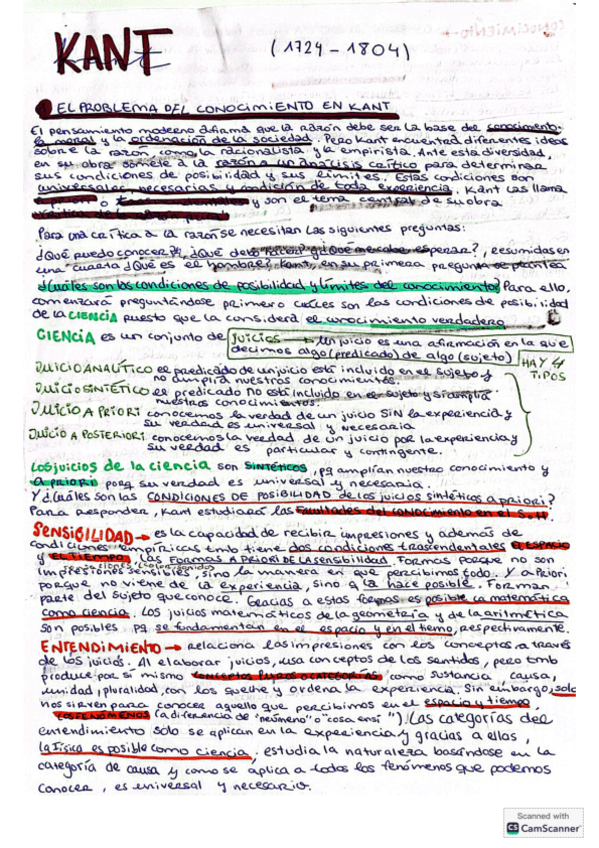 KANT (1724-1804)
EL PROBLEMA DEL CONOCIMIENTO EN KANT
El pensamiento moderno afirma que la razón debe ser la base del conocimiento,
la moral y la ordenación de la sociedad. Pero Kant encuentra diferentes ideas
sobre la razón, como la racionalista y la empirista. Ante esta diversidad,
en su obra somete a la razón a un análisis crítico para determinar
sus condiciones de posibilidad y sus límites. Estas condiciones son
universales, necesarias y condición de toda experiencia. Kant las llama
a priori o y son el tema central de su obra

Para una crítica a la razón se necesitan las siguientes preguntas:
¿Qué puedo conocer?, ¿Qué debo hacer? y ¿Qué me cabe esperar?, resumidas en
una cuarta ¿Qué es el hombre? Kant, en su primera pregunta se plantea
¿Cuáles son las condiciones de posibilidad y límites del conocimiento? Para ello,
comenzará preguntándose primero cuáles son las condiciones de posibilidad
de la CIENCIA puesto que la considera el conocimiento verdadero
CIENCIA es un conjunto de juicios → un juicio es una afirmación en la que
decimos algo (predicado) de algo (sujeto)
HAY 4 TIPOS
JUICIO ANALÍTICO el predicado de un juicio está incluido en el sujeto y
no amplía nuestros conocimientos.
JUICIO SINTÉTICO el predicado NO está incluido en el sujeto y si amplia
nuestros conocimientos.
JUICIO A PRIORI conocemos la verdad de un juicio SIN la experiencia y
su verdad es universal y necesaria
JUICIO A POSTERIORI conocemos la verdad de un juicio por la experiencia y
su verdad es particular y contingente.
Los juicios de la ciencia son SINTÉTICOS, pq amplían nuestro conocimiento y
A PRIORI porq su verdad es universal y necesaria.
Y ¿Cuáles son las CONDICIONES DE POSIBILIDAD de los juicios sintéticos a priori?
Para responder, Kant estudiará las facultades del conocimiento en el S.H.
SENSIBILIDAD → es la capacidad de recibir impresiones y además de
condiciones empíricas tmb tiene dos condiciones trascendentales EL ESPACIO
y EL TIEMPO, las FORMAS A PRIORI DE LA SENSIBILIDAD. Formas porque no son
impresiones sensibles, sino la manera en que percibimos todo. Y a priori
porque no viene de la experiencia, sino q la hace posible. Forman
parte del sujeto que conoce. Gracias a estas formas es posible la matemática
como ciencia. Los juicios matemáticos de la geometría y de la aritmética
son posibles pq se fundamentan en el espacio y en el tiempo, respectivamente.
ENTENDIMIENTO → relaciona las impresiones con los conceptos a través
de los juicios. Al elaborar juicios, usa conceptos de los sentidos, pero tmb
produce por sí mismo conceptos puros o CATEGORÍAS como sustancia, causa,
unidad, pluralidad, con los que une y ordena la experiencia. Sin embargo, solo
nos sirven para conocer aquello que percibimos en el espacio y tiempo,
LOS FENÓMENOS (a diferencia de "noúmeno" o "cosa en sí") Las categorías del
entendimiento solo se aplican en la experiencia y gracias a ellas,
la física es posible como ciencia, estudia la naturaleza basándose en la
categoría de causa y como se aplica a todos los fenómenos que podemos
conocer, es universal y necesario.
Scanned with
CS CamScanner